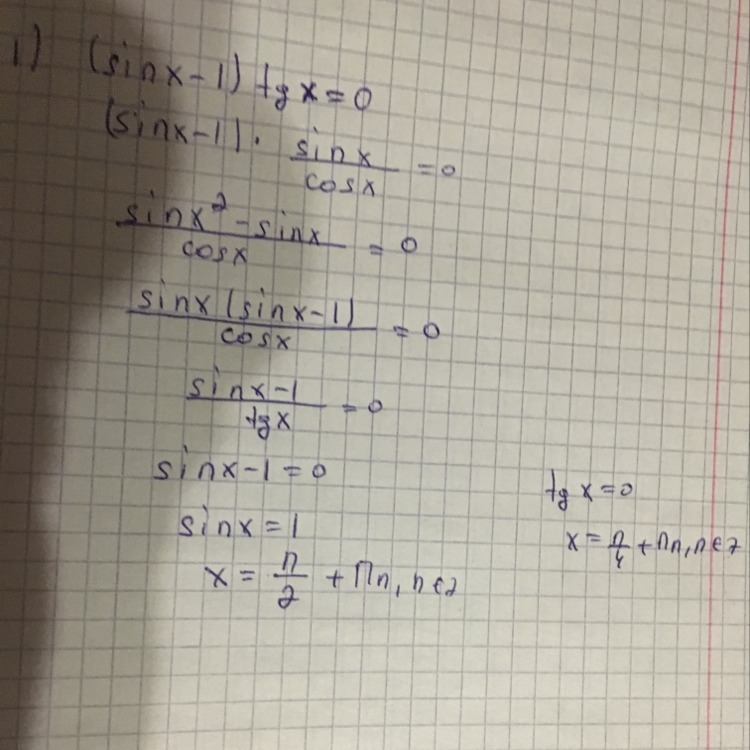 1) (sinx-1) tg x=0
(sinx-1)· sinx/cosx =0
sinx²-sinx/cosx = 0
sinx(sinx-1)/cosx = 0
sinx-1/tgx =0
sinx-1=0
sinx=1
x = π/2 + Πn, n∈z
tg x=0
x = π/4 + Πn, n∈z